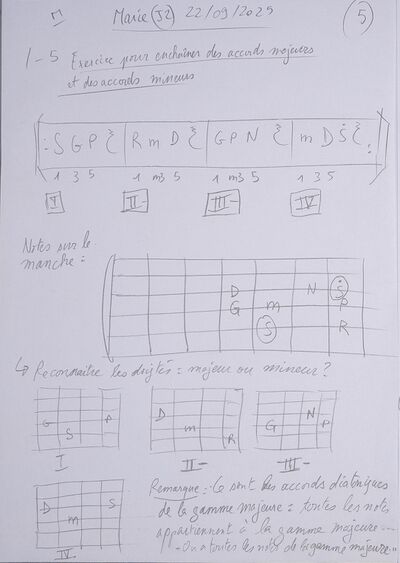 Marie (J2) 22/09/2025 5
1-5 Exercice pour enchaîner des accords majeurs
et des accords mineurs
S G P R m D G P N m D Ṡ
1 3 5 1 m3 5 1 m3 5 1 3 5
I II- III- IV
Notes sur le
manche :
D N Ṡ
G m P
S R
↳ Reconnaitre les doigtés : majeur ou mineur ?
G S P
D m R
G N P
I II- III-
D m S
IV
Remarque : Ce sont les accords diatoniques
de la gamme majeure : toutes les notes
appartiennent à la gamme majeure...
- On a toutes les notes de la gamme majeure..